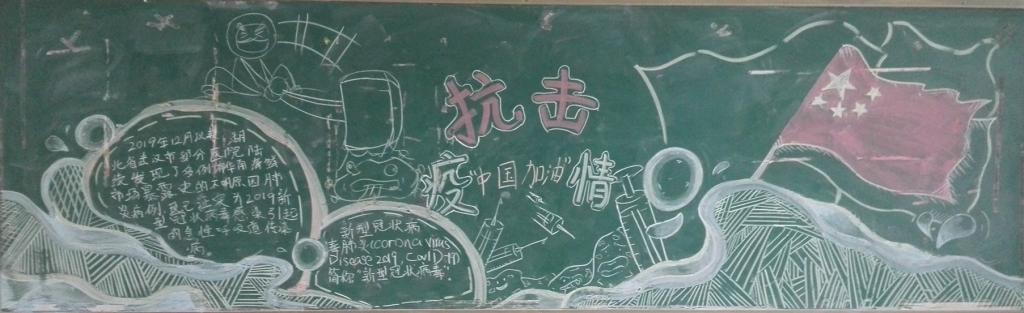 2019年12月以来,湖
北省武汉市部分医院陆
续发现了多例华南海鲜
市场暴露史的不明原因肺
炎病例,现已证实为2019新
型冠状病毒感染引起
的急性呼吸道传染
病。
新型冠状病
毒肺炎(corona virus
Disease 2019, CovID-19)
简称"新型冠状病毒".
抗击
疫情
中国加油